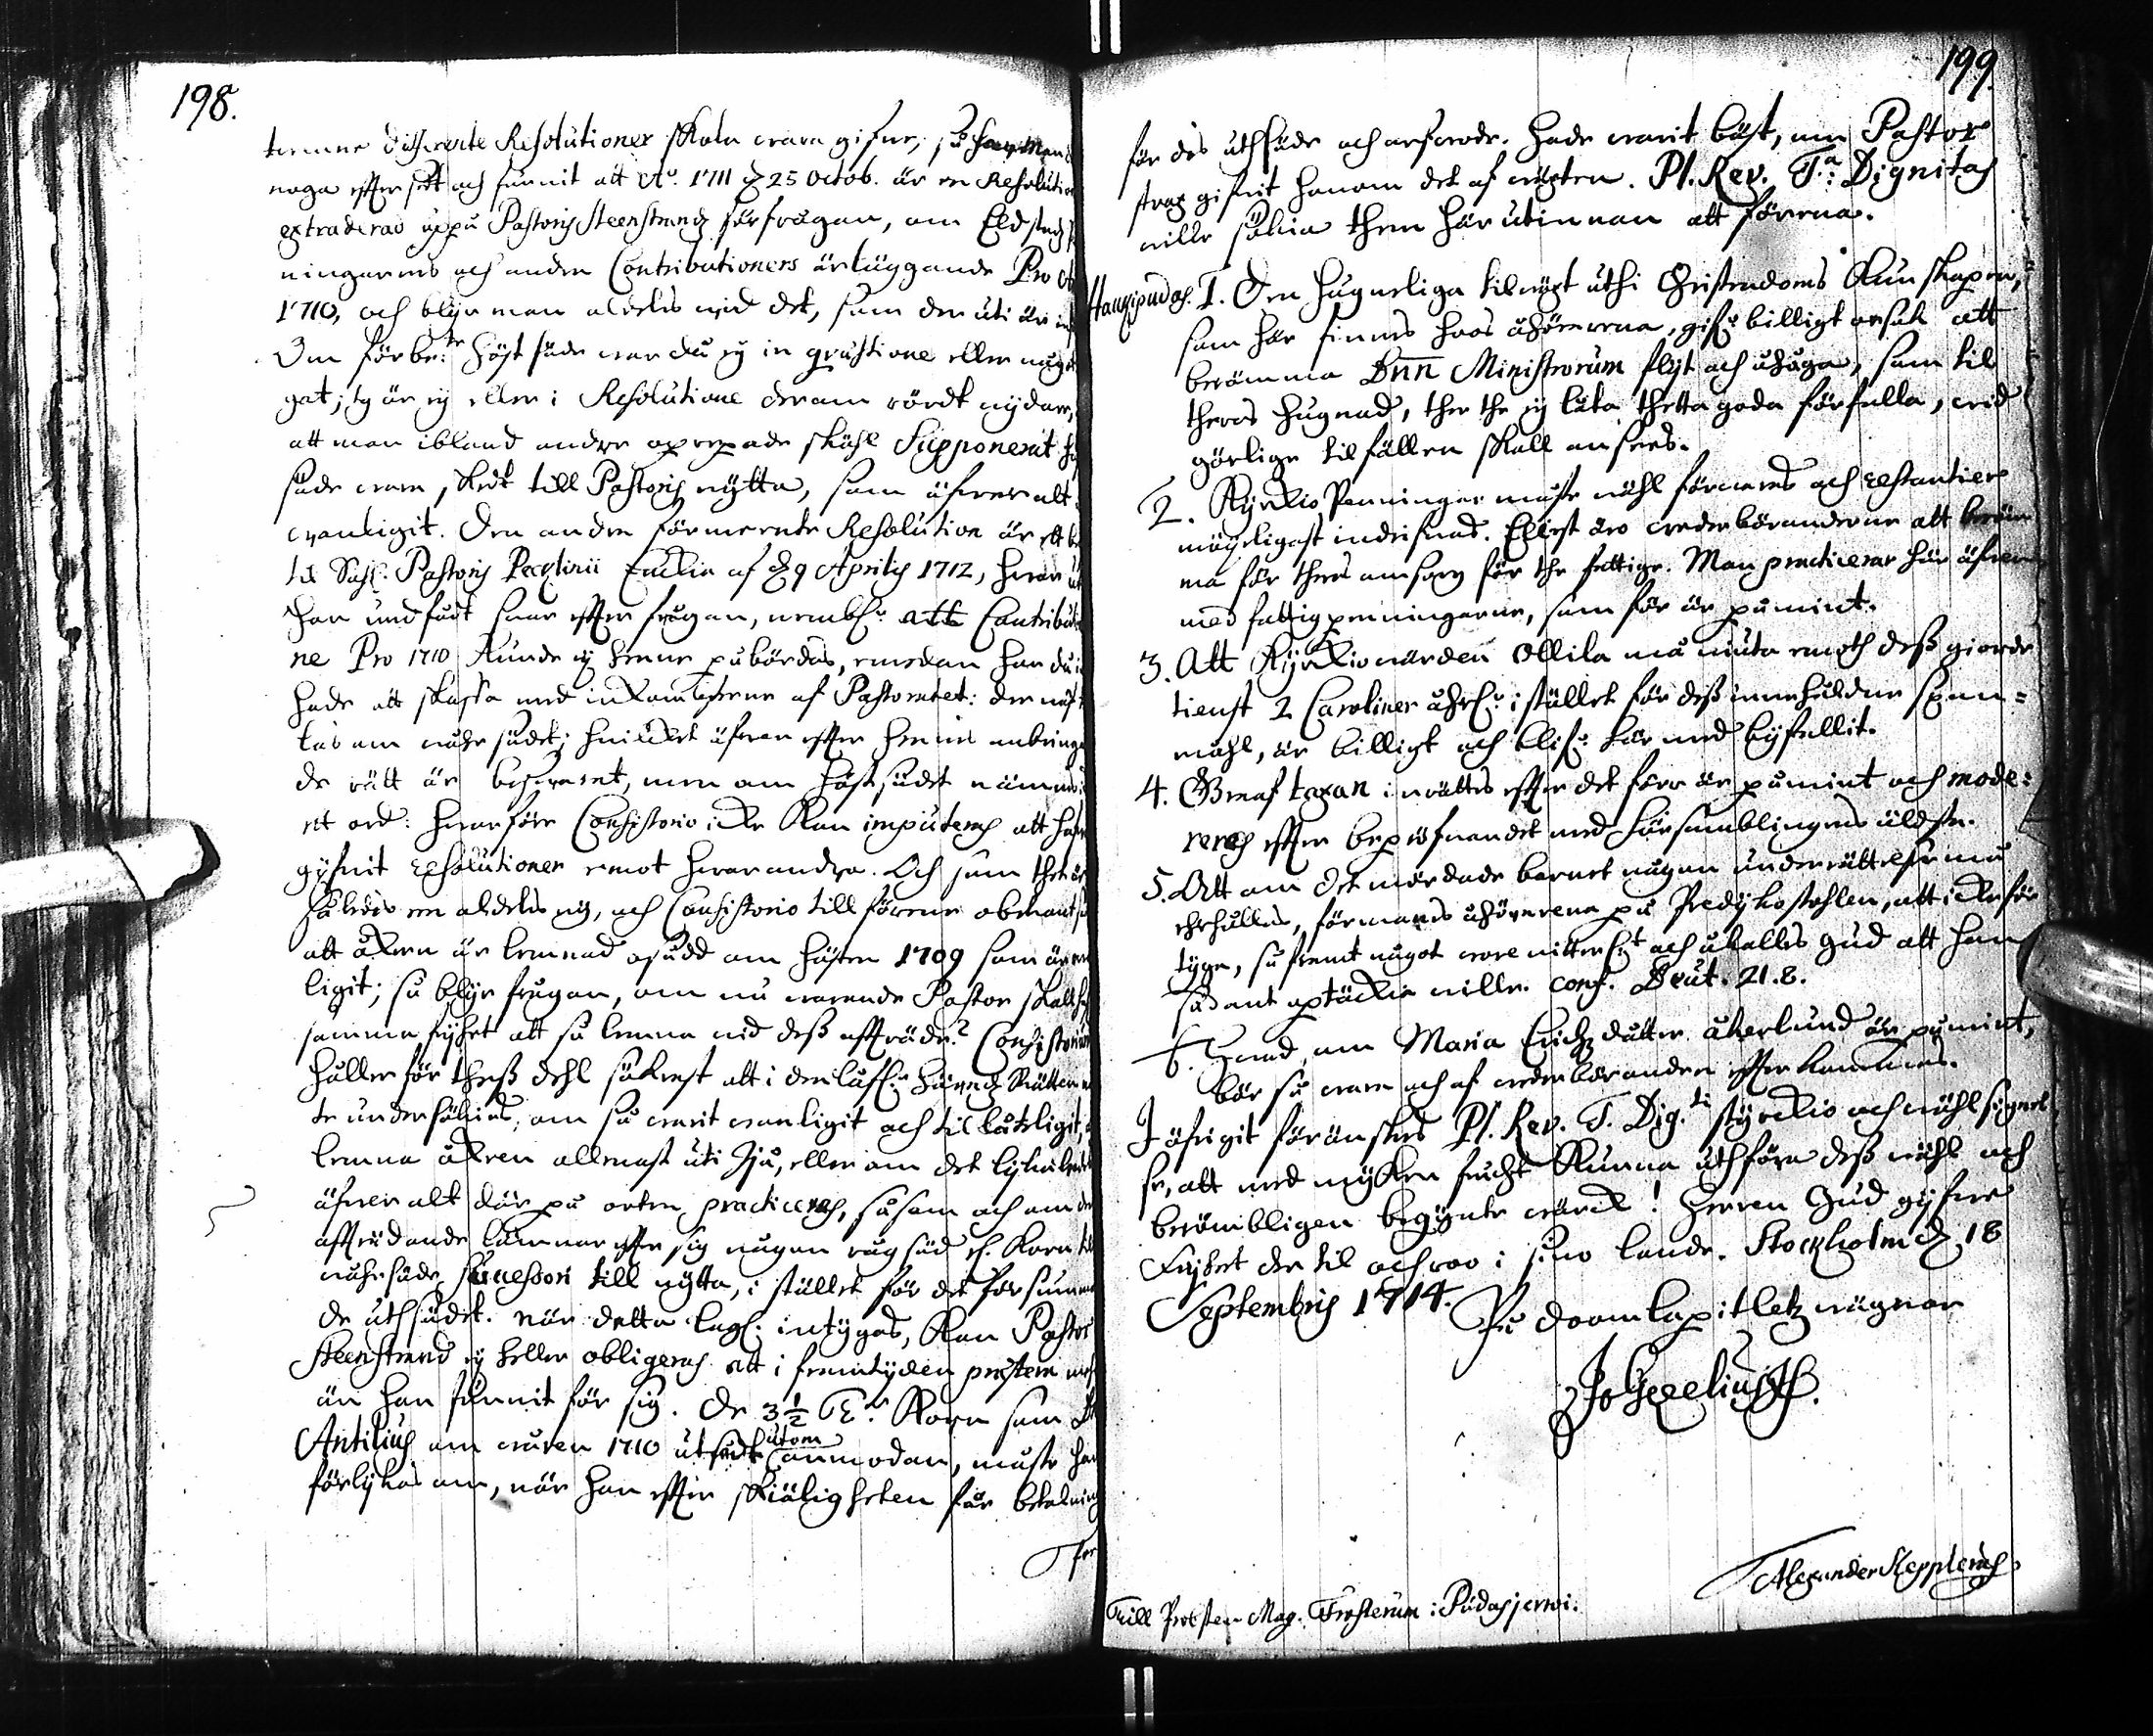 198.
temme differente Resolutioner skola wara gifne, så har man
noga effter sedt och funnit att A:o 1711 d 25 Octob. är en Resolution
extraderad uppå Pastoris Steenstrands förfrågan, om Eld stads
ningarnes och andra Contributioners ärläggande Pro
1710, och blijr man aldeles wid det, som der uti är
Om förbe:te Höst säde war då ej in quæstione eller någ
gat; ty är ej eller i Resolutione derom rördt nijdare,
att man ibland andre oprepade skähl Supponerat
säde wara, skedt till Pastoris nytta, som öfwer alt
wanligit. Den andra förmeente Resolution är ett
til Sahl. Pastoris Pectlinii Enckia af d 9 Aprilis 1712, hwar
hon undfådt swar effter frågan, nembl:n att Contributio
ne Pro 1710 kunde ej henne påbördas, emedan hon då
hade att skaffa med inkombsterne af Pastoratet:
tas om wåhr sädet; hwilcket äfwen effter hennes anbringan
de rätt är beswarat, men om höst sädet nämnes
ett ord: hwarföre Consistorio icke kan imputeras att hafwa
gifwit resolutioner emot hwarandra. Och som thet är
således en aldeles nij, och Consistorio till förene obekant
att åkern är lemnad osådd om hösten 1709 som är
ligit; så blijr frågan, om nu warande Pastor skall
samma frijhet att så lemna wid dess affträde? Consistorium
håller för thess dehl säkrast att i den läffl:e Härads Rätten
te undersökies, om så warit wanligit och tillåteligit,
lemna åkren allenast uti Sju, eller om det lijka
öfwer alt där på orten practiceras, såsom och om de
affträdande lämnar effter sig någon råg säd eh. Korn till
wåhrsäde, successori till nytta, i stället för det försumma
de uthsädet. när detta lagl. intygas, kan Pastor
Steenstrand ej heller obligeras att i framtijden præstera
än han funnit för sig. De 3 1/2 T:r Korn som
Antilius om wåren 1710 utsådt utom anmodan, måste han
förlijkas om, när han effter skiäligheten får betalning
för
199.
för des uthsäde och arfwode. Hade warit bäst, om Pastor
strax gifwit honom det af wäxten. Pl. Rev. T:a Dignitas
wille sökia them här utinnan att förena.
Haukipudas. 1. Den hugneliga tilwäxt uthi Christendoms kunskapen,
som här finnes hoos åhörarena, gifr billigt orsak att
berömma Dnn Ministrorum flijt och åhåga, som til
theras hugnad, ther the ej låta thetta goda förfalla, wid
görlige tilfällen skall ansees.
2. Kyrckio Penningar måste wähl förwaras och restantier
möijeligast indrifwas. Eljest äro wederbörandena att beröm
ma för theras omsorg för the fattige. Man practicerar här äfwen
med fattigpenningarne, som för är påmint.
3. Att Kyrckiowärden Ollila må niuta emoth dess giorde
tienst 2 Caroliner åhrl:n i stället för dess innehåldne spann=
måhl, är billigt och blifr här med bijfallit.
4. Graf taxan inrättes effter det förr är påmint och mode=
reras effter bepröfwandet med församblingens äldste.
5. Att om det mördade barnet någon underrättelse må
erhållas, förmanes åhörarena på Predikostohlen, att icke för
tijga, såframt något wore witterl:t och åkallas Gud att han
sådant uptäckia wille. conf. Deut. 21.8.
6. Hwad om Maria Erichsdotter åkerlund är påmint,
bör så wara och af wederbörander effterkommas.
I öfrigit förönskes Pl. Rev. T. Dig:ti styrckio och wählsignel
se, att med mycken frucht kunna uthföra dess wähl och
berömbligen begynte wärck! Herren Gud gifwe
Frijhet der til och roo i sino lande. Stockholm d 18
Septembris 1714.
På doomkapitletz wägnar
Jo Gezelius JF.
Alexander Kepplerus.
Till Probsten Mag. Frosterum i Pudasjerwi.